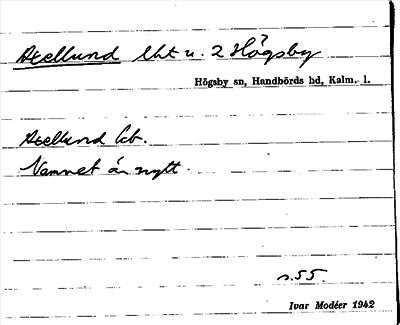 Axellund lht u. 2 Högsby
Högsby sn, Handbörds hd, Kalm. l.
Axellund kb.
Namnet är nytt
s. 55.
Ivar Modéer 1942